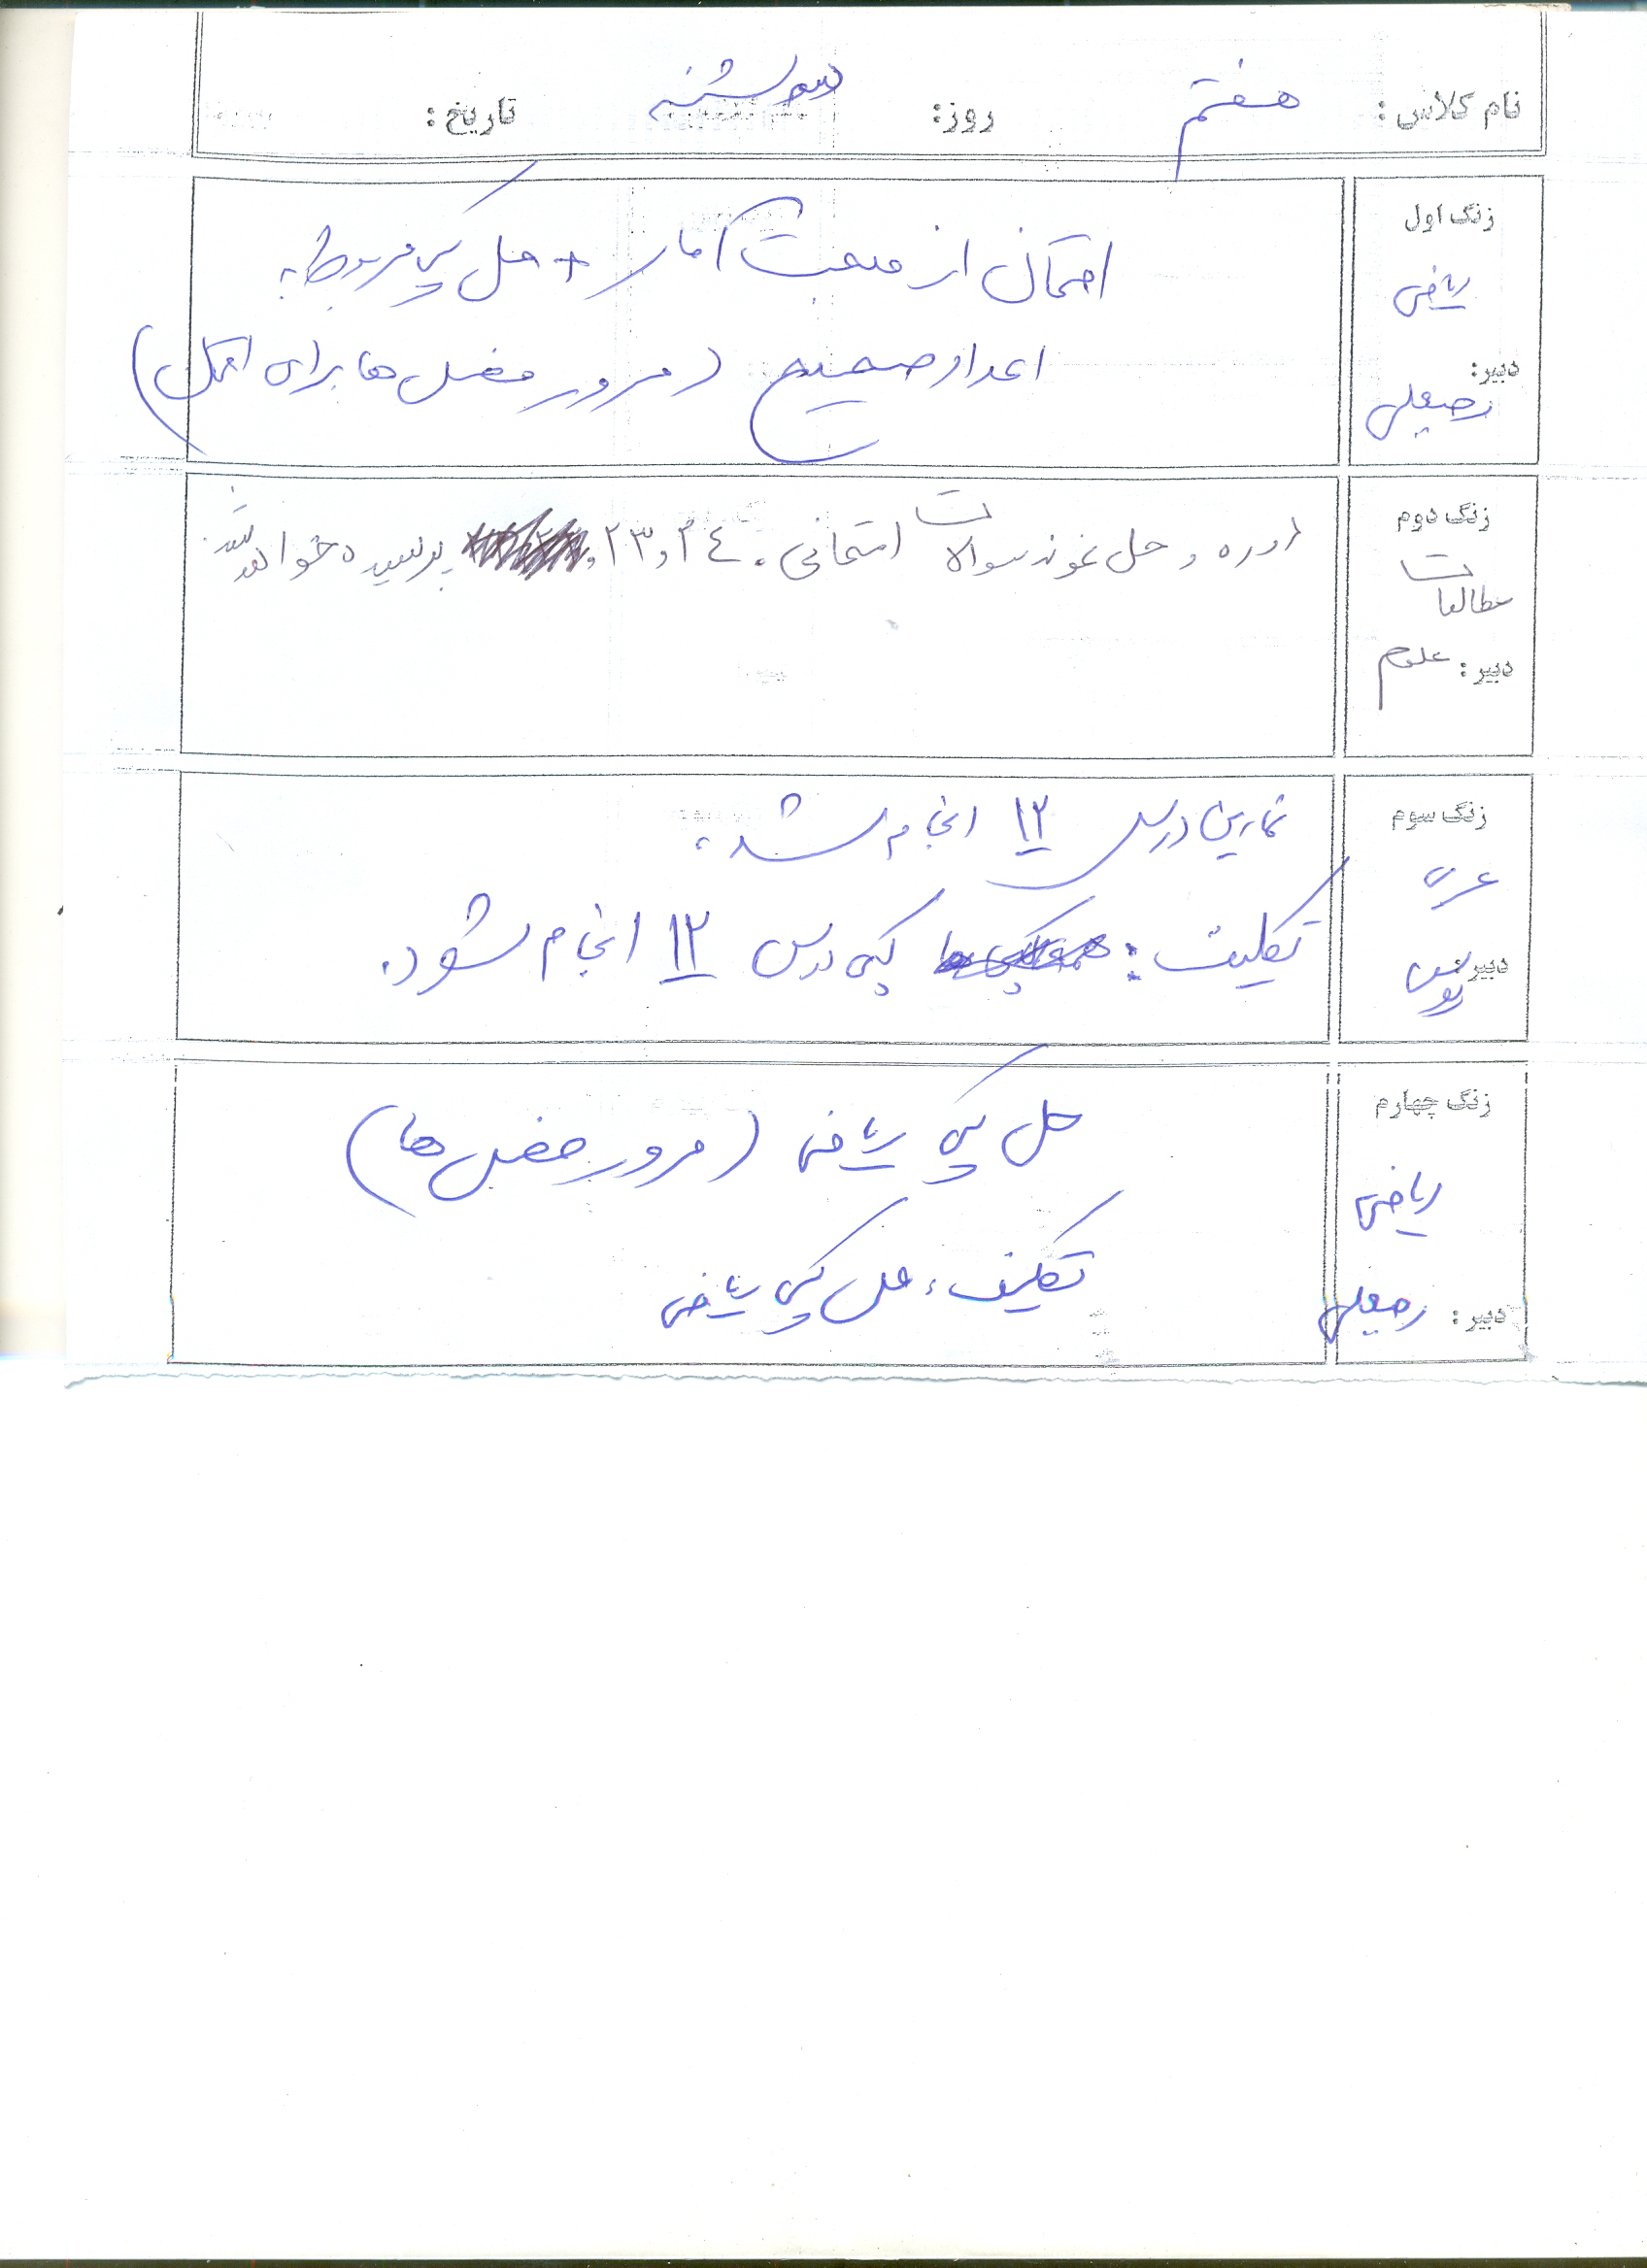 نام کلاس: هفتم روز: سه شنبه تاریخ:
زنگ اول
ریاضی
دبیر:
رجبعلی
امتحان از مبحث آمار + حل کپی مربوط به
اعداد صحیح (مرور فصل ها برای امتحان)
زنگ دوم
مطالعات
دبیر: علوم
دوره و حل نمونه سوالات امتحانی. ۲۳ و ۲۴ پرسیده خواهد شد.
زنگ سوم
عربی
دبیر:
تمارین درس ۱۲ انجام شد.
تکلیف: کپی درس ۱۲ انجام شود.
زنگ چهارم
ریاضی
دبیر: رجبعلی
حل کپی ریاضی (مرور فصل ها)
تکلیف: حل کپی ریاضی